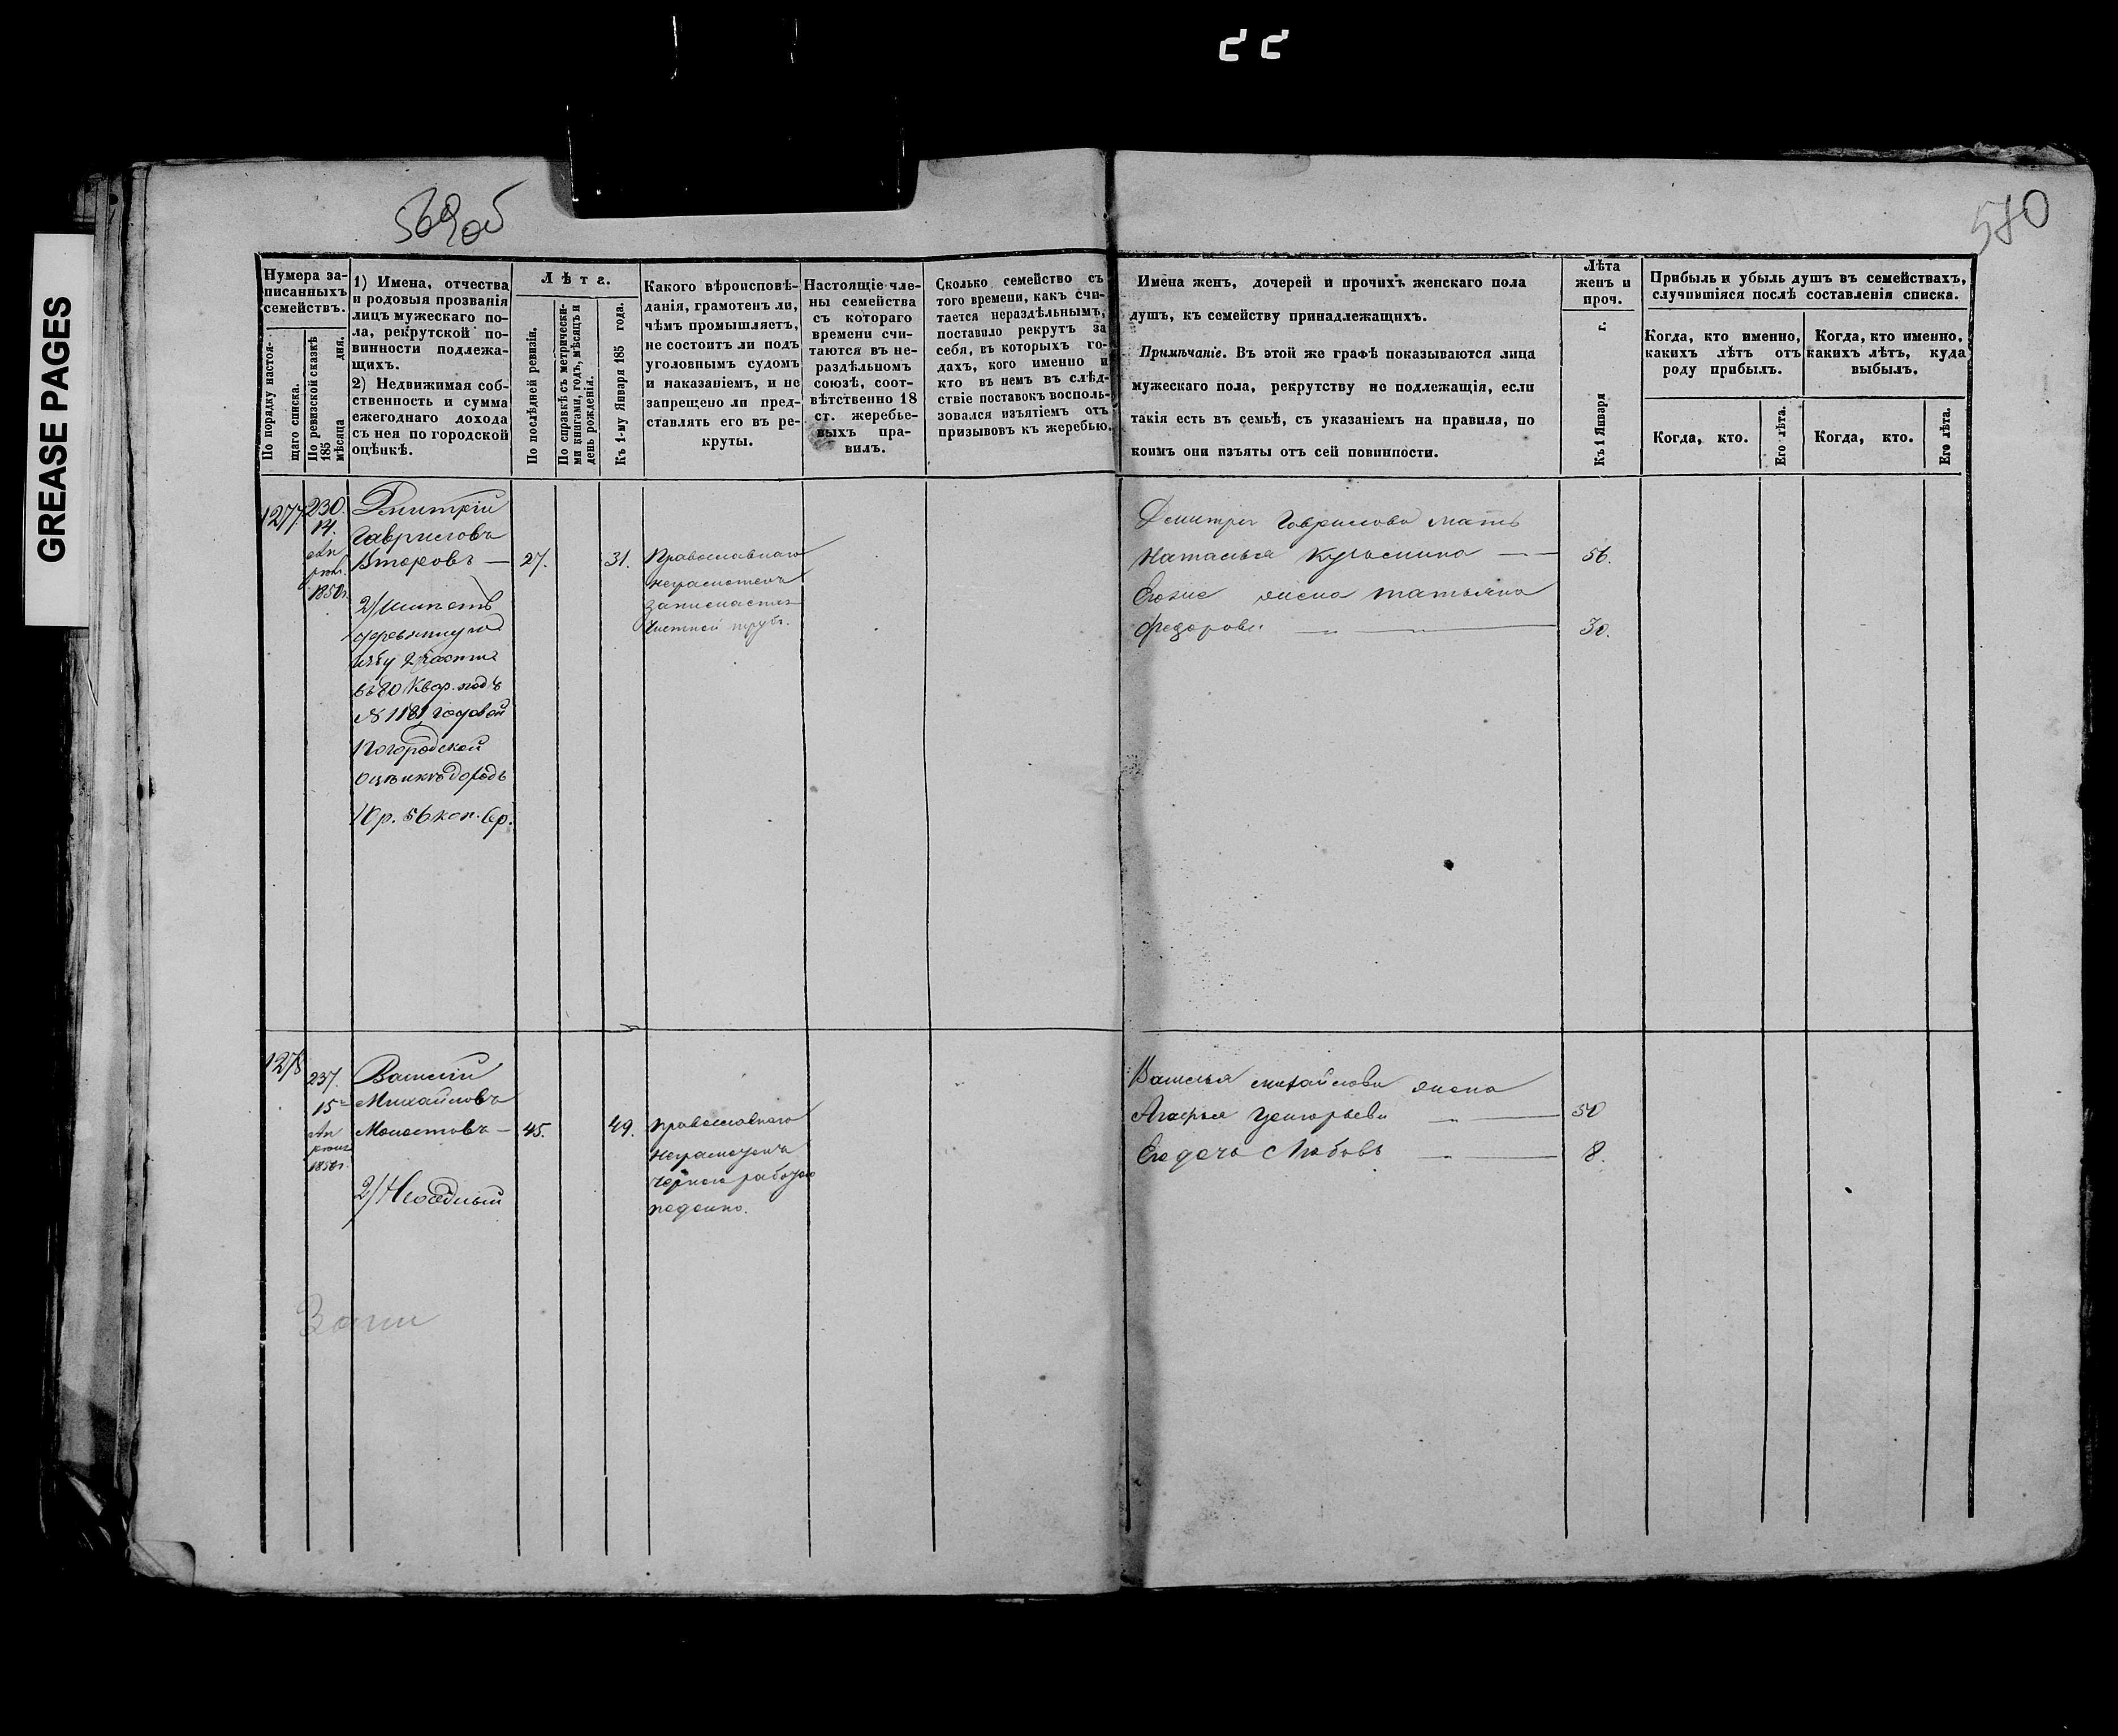 GREASE PAGES
569об
580
Нумера за-
писанныхъ
семействъ.
По порядку настоя-
щаго списка.
По ревизской сказкѣ
185
мѣсяца дня.
1) Имена, отчества
и родовыя прозванія
лицъ мужескаго по-
ла, рекрутской по-
винности подлежа-
щихъ.
2) Недвижимая соб-
ственность и сумма
ежегоднаго дохода
съ нея по городской
оцѣнкѣ.
Лѣта.
По послѣдней ревизіи.
По справкѣ съ метрически-
ми книгами, годъ, мѣсяцъ и
день рожденія.
Къ 1-му Января 185 года.
Какого вѣроисповѣ-
данія, грамотенъ ли,
чѣмъ промышляетъ,
не состоитъ ли подъ
уголовнымъ судомъ
и наказаніемъ, и не
запрещено ли пред-
ставлять его въ ре-
круты.
Настоящіе чле-
ны семейства
съ котораго
времени счи-
таются въ не-
раздѣльномъ
союзѣ, соот-
вѣтственно 18
ст. жеребье-
выхъ пра-
вилъ.
Сколько семейство съ
того времени, какъ счи-
тается нераздѣльнымъ,
поставило рекрутъ за
себя, въ которыхъ го-
дахъ, кого именно и
кто въ немъ въ слѣд-
ствіе поставокъ восполь-
зовался изъятіемъ отъ
призывовъ къ жеребью.
Имена женъ, дочерей и прочихъ женскаго пола
душъ, къ семейству принадлежащихъ.
Примѣчаніе. Въ этой же графѣ показываются лица
мужескаго пола, рекрутству не подлежащія, если
такія есть въ семьѣ, съ указаніемъ на правила, по
коимъ они изъяты отъ сей повинности.
Лѣта
женъ и
проч.
Къ 1 Января г.
Прибыль и убыль душъ въ семействахъ,
случившіяся послѣ составленія списка.
Когда, кто именно,
какихъ лѣтъ отъ
роду прибылъ.
Когда, кто именно,
какихъ лѣтъ, куда
выбылъ.
Когда, кто.
Его лѣта.
Когда, кто.
Его лѣта.
1277
230.
14.
Ап
рѣля
1850г.
Дмитрій
Гавриловъ
Второвъ — 27. 31.
2/ Имѣетъ
деревянную
избу 2 части
въ 80 Квар. подъ
№ 1181 годовой
по городской
оцѣнкѣ доходъ
1 р. 56 коп. сер.
Православнаго
неграмотенъ
Дмитрія Гаврилова мать
Наталья — 56.
Его же жена Татьяна
Федорова — 30.
1278
237.
15
Ап
рѣля
1850г.
Василій
Михайловъ
— 45. 49.
2/
Православнаго
неграмотенъ
черной работою
поденно.
Василья Михайлова жена
Агафья Григорьева — 50
Его дочь Любовь — 8.